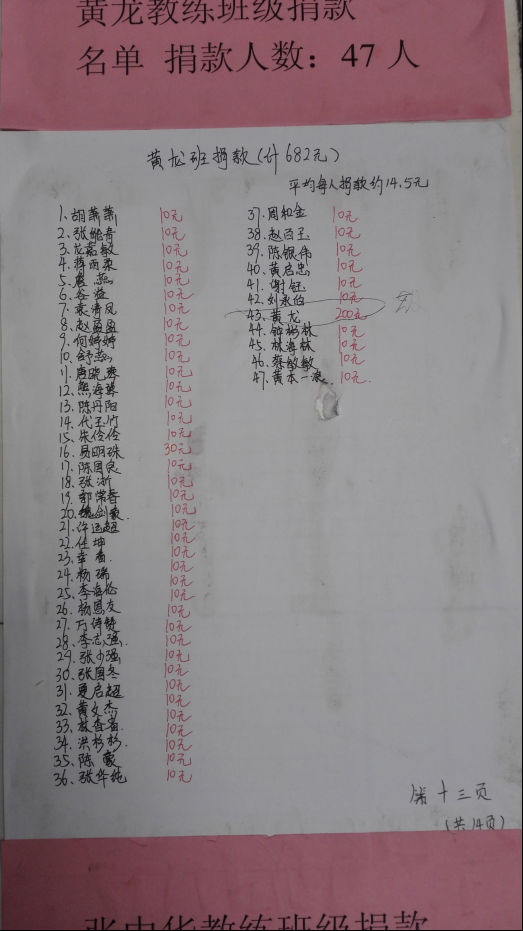 黄龙教练班级捐款
名单 捐款人数：47人
黄龙班捐款(计682元)
平均每人捐款约14.5元
1、胡萧萧 10元
2、张艳青 10元
3、龙嘉敏 10元
4、蒋雨柔 10元
5、 10元
6、谷益 10元
7、袁清凤 10元
8、赵盈盈 10元
9、何婷婷 10元
10、舒 10元
11、唐晓 10元
12、熊海 10元
13、陈丹阳 10元
14、代玉竹 10元
15、朱伶伶 10元
16、易明珠 30元
17、陈国良 10元
18、张浙 10元
19、郭常春 10元
20、魏剑豪 10元
21、许远超 10元
22、任坤 10元
23、 10元
24、杨瑞 10元
25、李海伦 10元
26、杨恩友 10元
27、万诗赞 10元
28、李志强 10元
29、张少强 10元
30、张国冬 10元
31、夏启超 10元
32、黄文杰 10元
33、 10元
34、洪杉杉 10元
35、陈蒙 10元
36、张华纯 10元
37、周和金 10元
38、赵百玉 10元
39、陈银伟 10元
40、黄启忠 10元
41、谢钰 10元
42、刘永的 10元
43、黄龙 200元
44、钟彬林 10元
45、林海林 10元
46、蔡敏敏 10元
47、黄本一浪 10元
第十三页
(共14页)
张中华教练班级捐款